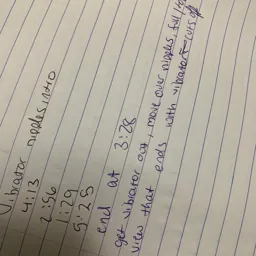 Vibrator nipples intro
4:13
2:56
1:29
5:25
end at 3:28
get vibrator out, move over nipples, full
view that ends with vibrator cuts off